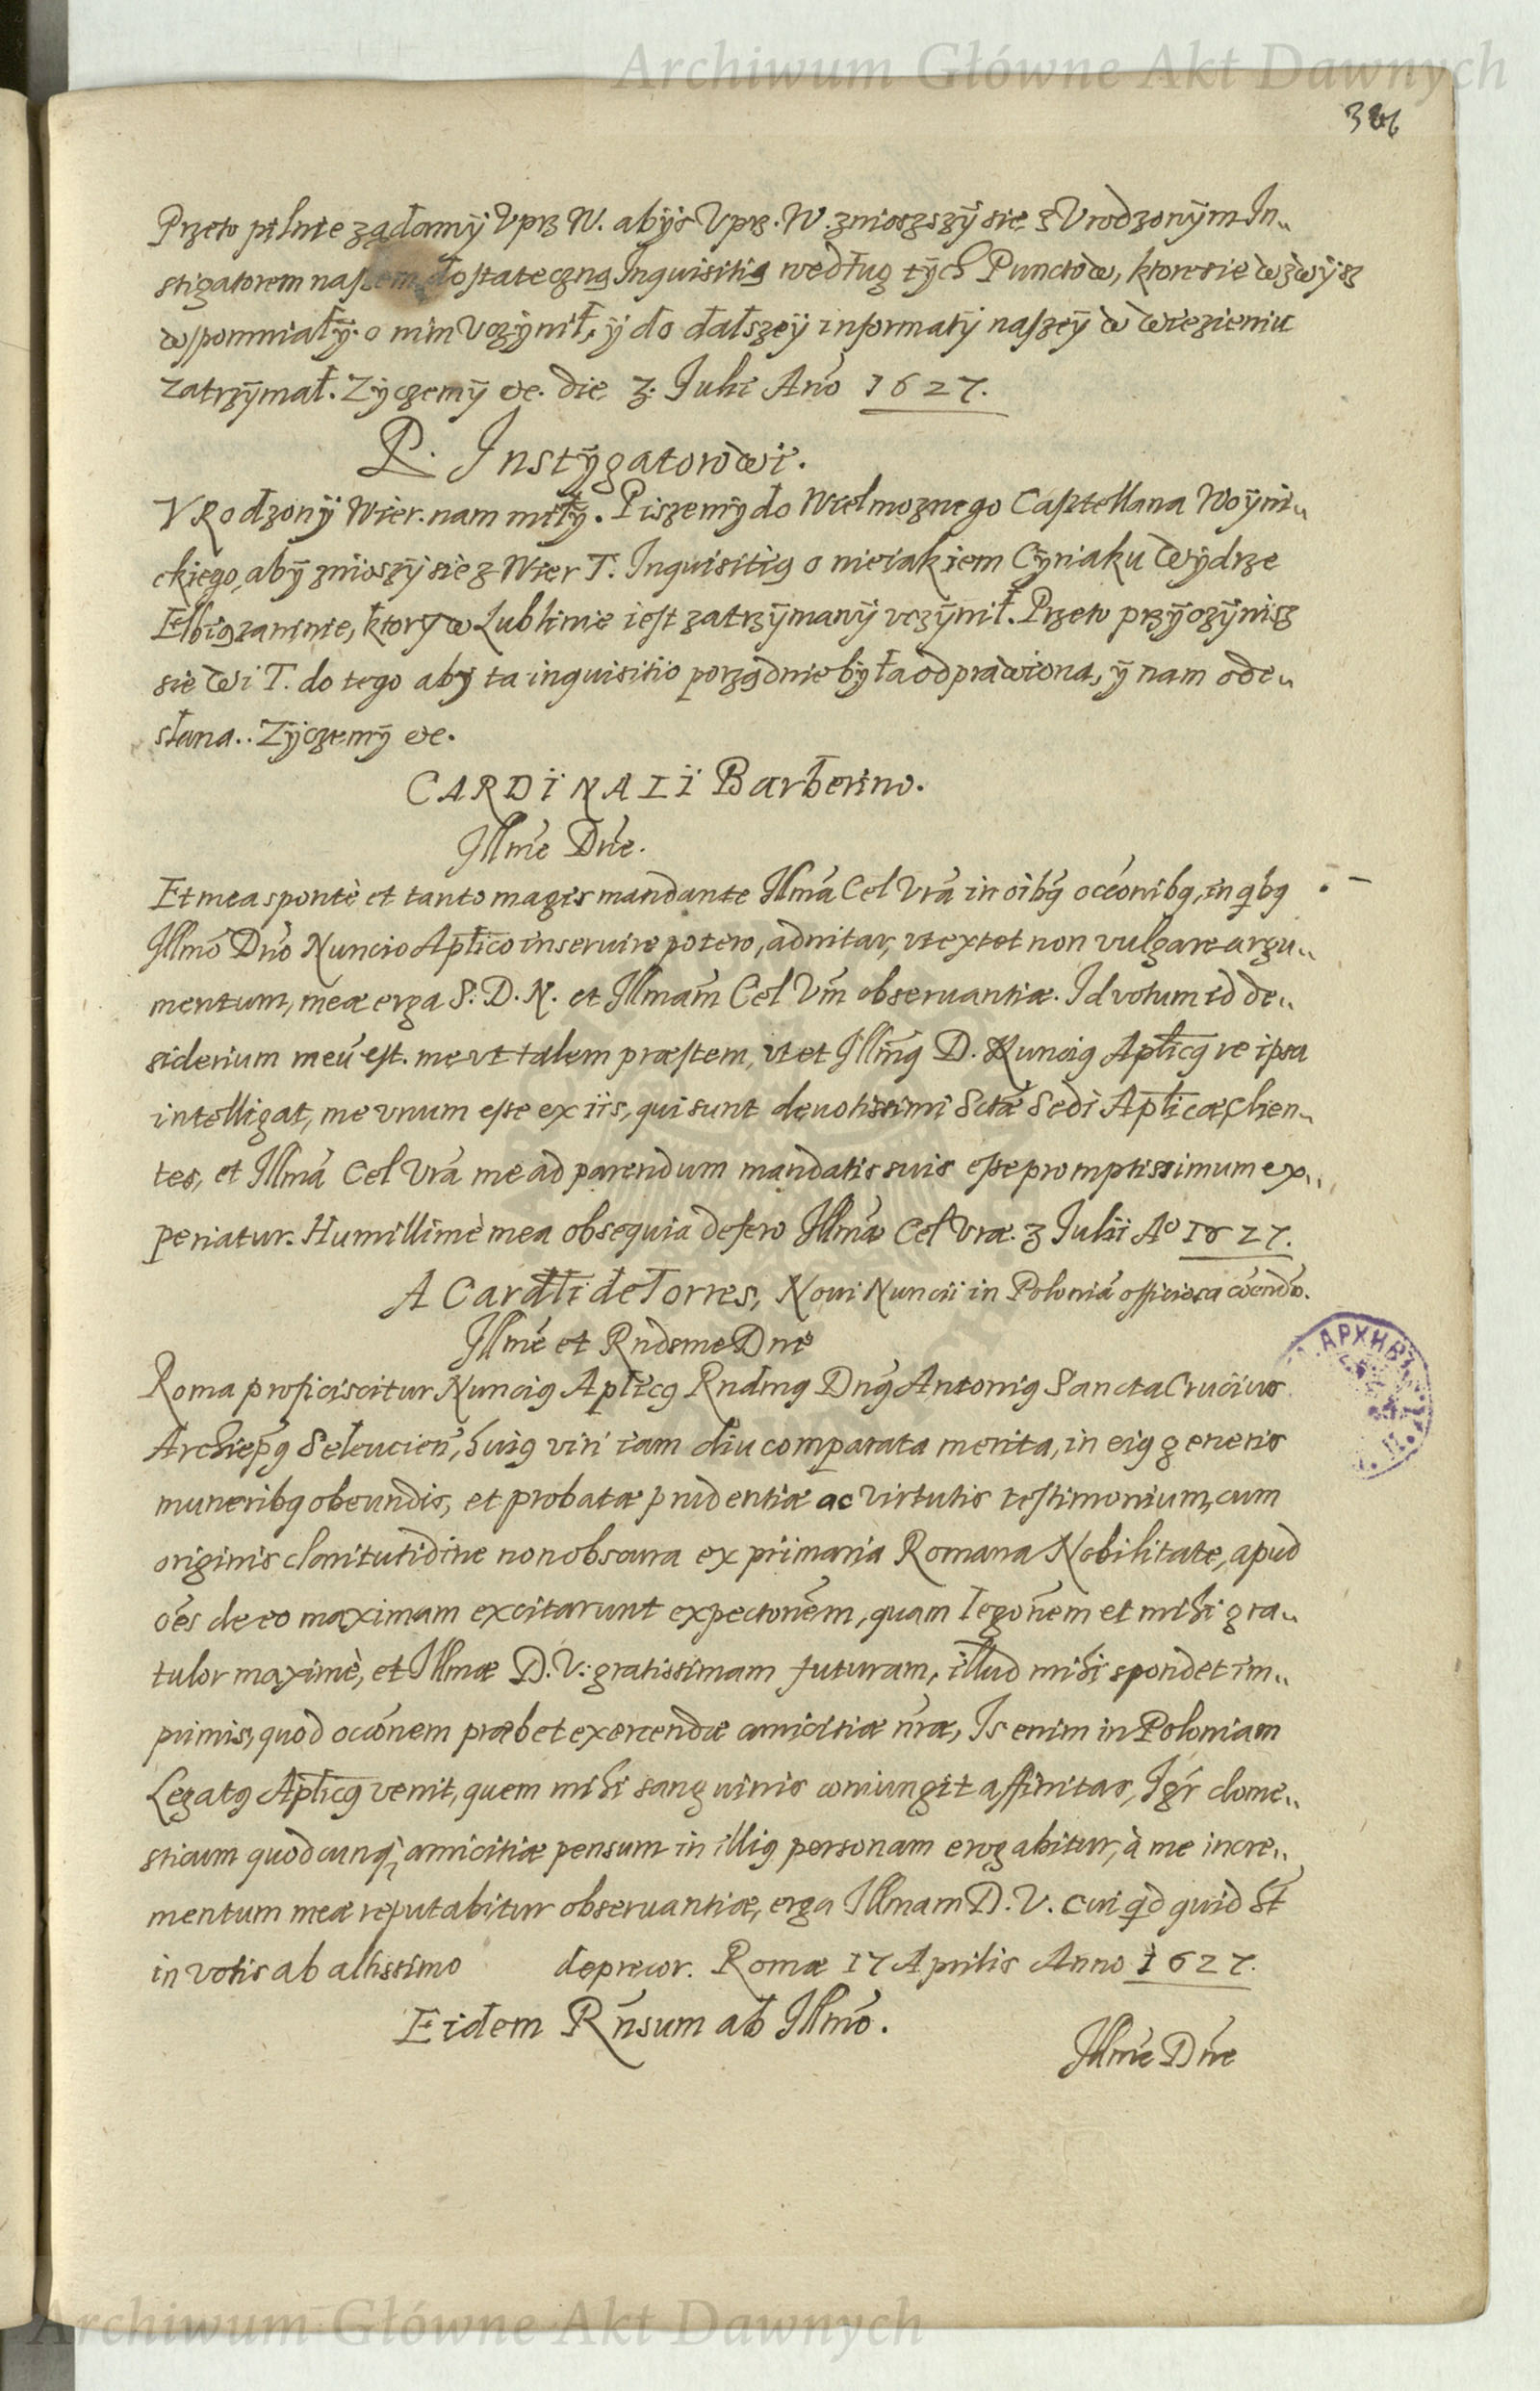 Archiwum Główne Akt Dawnych
Przeto pilnie ządamÿ Vprz W. abÿs Vprz. W. znioszszÿ sie z Vrodzonÿm In„
stigatorem naszem dostateczną Inquisitią według tÿch Punctow, ktore sie wzwÿsz
wspomniałÿ. o nim Vczÿnił, ÿ do dałszeÿ informatÿ naszeÿ w wiezieniu
zatrzÿmał. Zÿczemÿ etc. die 3. Iulii Anó 1627.
P. Instÿgatorowi.
VRodzonÿ Wier. nam miłÿ. Piszemÿ do Wielmoznego Casztellana Woÿni„
ckiego, abÿ znioszÿ sie z Wier T. Inquisitią o nieiakiem Cÿriaku Wÿdrze
Elbiązaninie, ktorÿ w Lublinie iest zatrzÿmanÿ vczÿnił. Przeto przÿczÿnisz
sie Wi T. do tego abÿ ta inquisitio porządnie bÿła odprawiona, ÿ nam ode„
słana.. Zÿczemÿ etc.
CARDINALI Barberino.
Illmé Dné.
Et mea spontè et tanto magis mandante Illmá Cel Vrá in oibꝰ occónibꝫ, in qbꝫ
Illmó Dnó Nuncio Aplico inseruire potero, adnitar, vt extet non vulgare argu„
mentum, meæ erga S. D. N. et Illmam Cel Vm obseruantiæ. Id votum id de„
siderium meú est. me vt talem præstem, vt et Illmꝰ D. Nunciꝰ Aplicꝰ re ipsa
intelligat, me vnum esse ex iis, qui sunt deuotissimi Sctæ Sedi Aplicæ, clien„
tes, et Illmá Cel Vrá me ad parendum mandatis suis esse promptissimum ex„
periatur. Humillimè mea obsequia defero Illmæ Cel Vræ. 3 Iulii Aº 1627.
A Cardli de Torres, Noui Nuncii in Poloniá officiosa cóendó.
Illmé et Rndsme Dné
Roma proficiscitur Nunciꝰ Aplicꝰ Rndmꝰ Dnꝰ Antoniꝰ Sancta Crucius
Archiepꝰ Seleucien, huiꝰ viri iam diu comparata merita, in eiꝰ generis
muneribꝫ obeundis, et probatæ prudentiæ ac virtutis testimonium, cum
originis claritutidine non obscura ex primaria Romana Nobilitate, apud
oés de eo maximam excitarunt expectonem, quam legonem et mihi gra„
tulor maximè, et Illmæ D. V. gratissimam futuram, illud mihi spondet im„
primis, quod occónem præbet exercendæ amicitiæ nræ, Is enim in Poloniam
Legatꝰ Aplicꝰ venit, quem mihi sanguinis coniungit affinitas, Igr dome„
sticum quodcunq, amicitiæ pensum in illiꝰ personam erogabitur, à me incre„
mentum meæ reputabitur obseruantiæ, erga Illmam D. V. cui qd quid st
in votis ab altissimo deprecor. Romæ 17 Aprilis Anno 1627.
Eidem Rnsum ab Illmó.
Illmé Dne
АРХИВ
Archiwum Główne Akt Dawnych